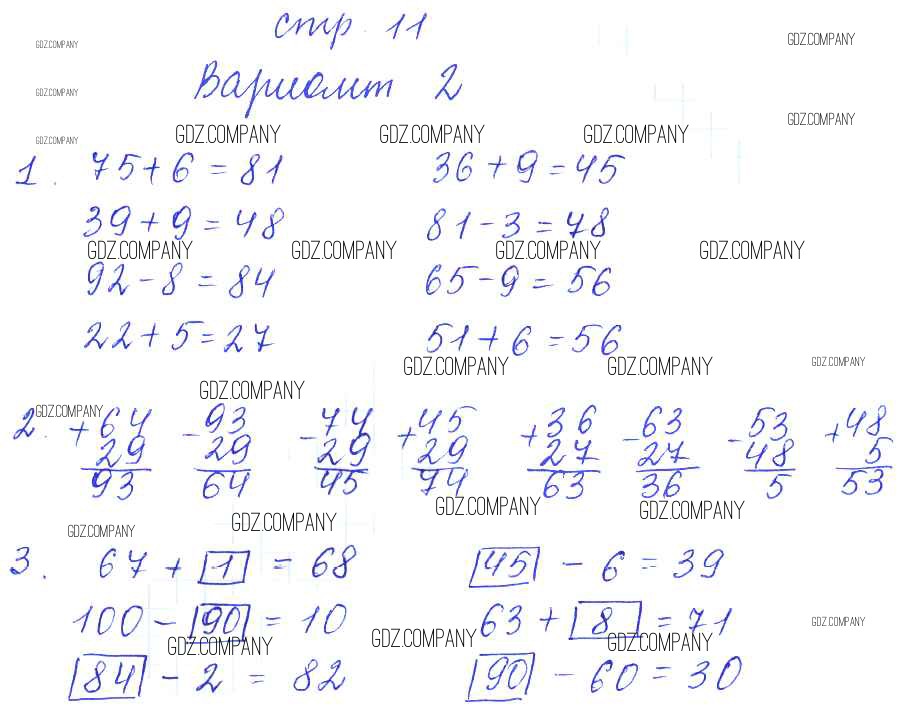 стр. 11
GDZ.COMPANY GDZ.COMPANY
Вариант 2
GDZ.COMPANY
GDZ.COMPANY GDZ.COMPANY GDZ.COMPANY GDZ.COMPANY GDZ.COMPANY
1. 75+6=81 36+9=45
39+9=48 81-3=78
GDZ.COMPANY GDZ.COMPANY GDZ.COMPANY GDZ.COMPANY
92-8=84 65-9=56
22+5=27 51+6=56
GDZ.COMPANY GDZ.COMPANY GDZ.COMPANY
GDZ.COMPANY
GDZ.COMPANY
2. +64 -93 -74 +45 +36 -63 -53 +48
29 29 29 29 27 27 48 5
93 64 45 74 63 36 5 53
GDZ.COMPANY GDZ.COMPANY
GDZ.COMPANY GDZ.COMPANY
3. 67 + 1 = 68 45 - 6 = 39
100 - 90 = 10 63 + 8 = 71
GDZ.COMPANY GDZ.COMPANY GDZ.COMPANY GDZ.COMPANY
84 - 2 = 82 90 - 60 = 30